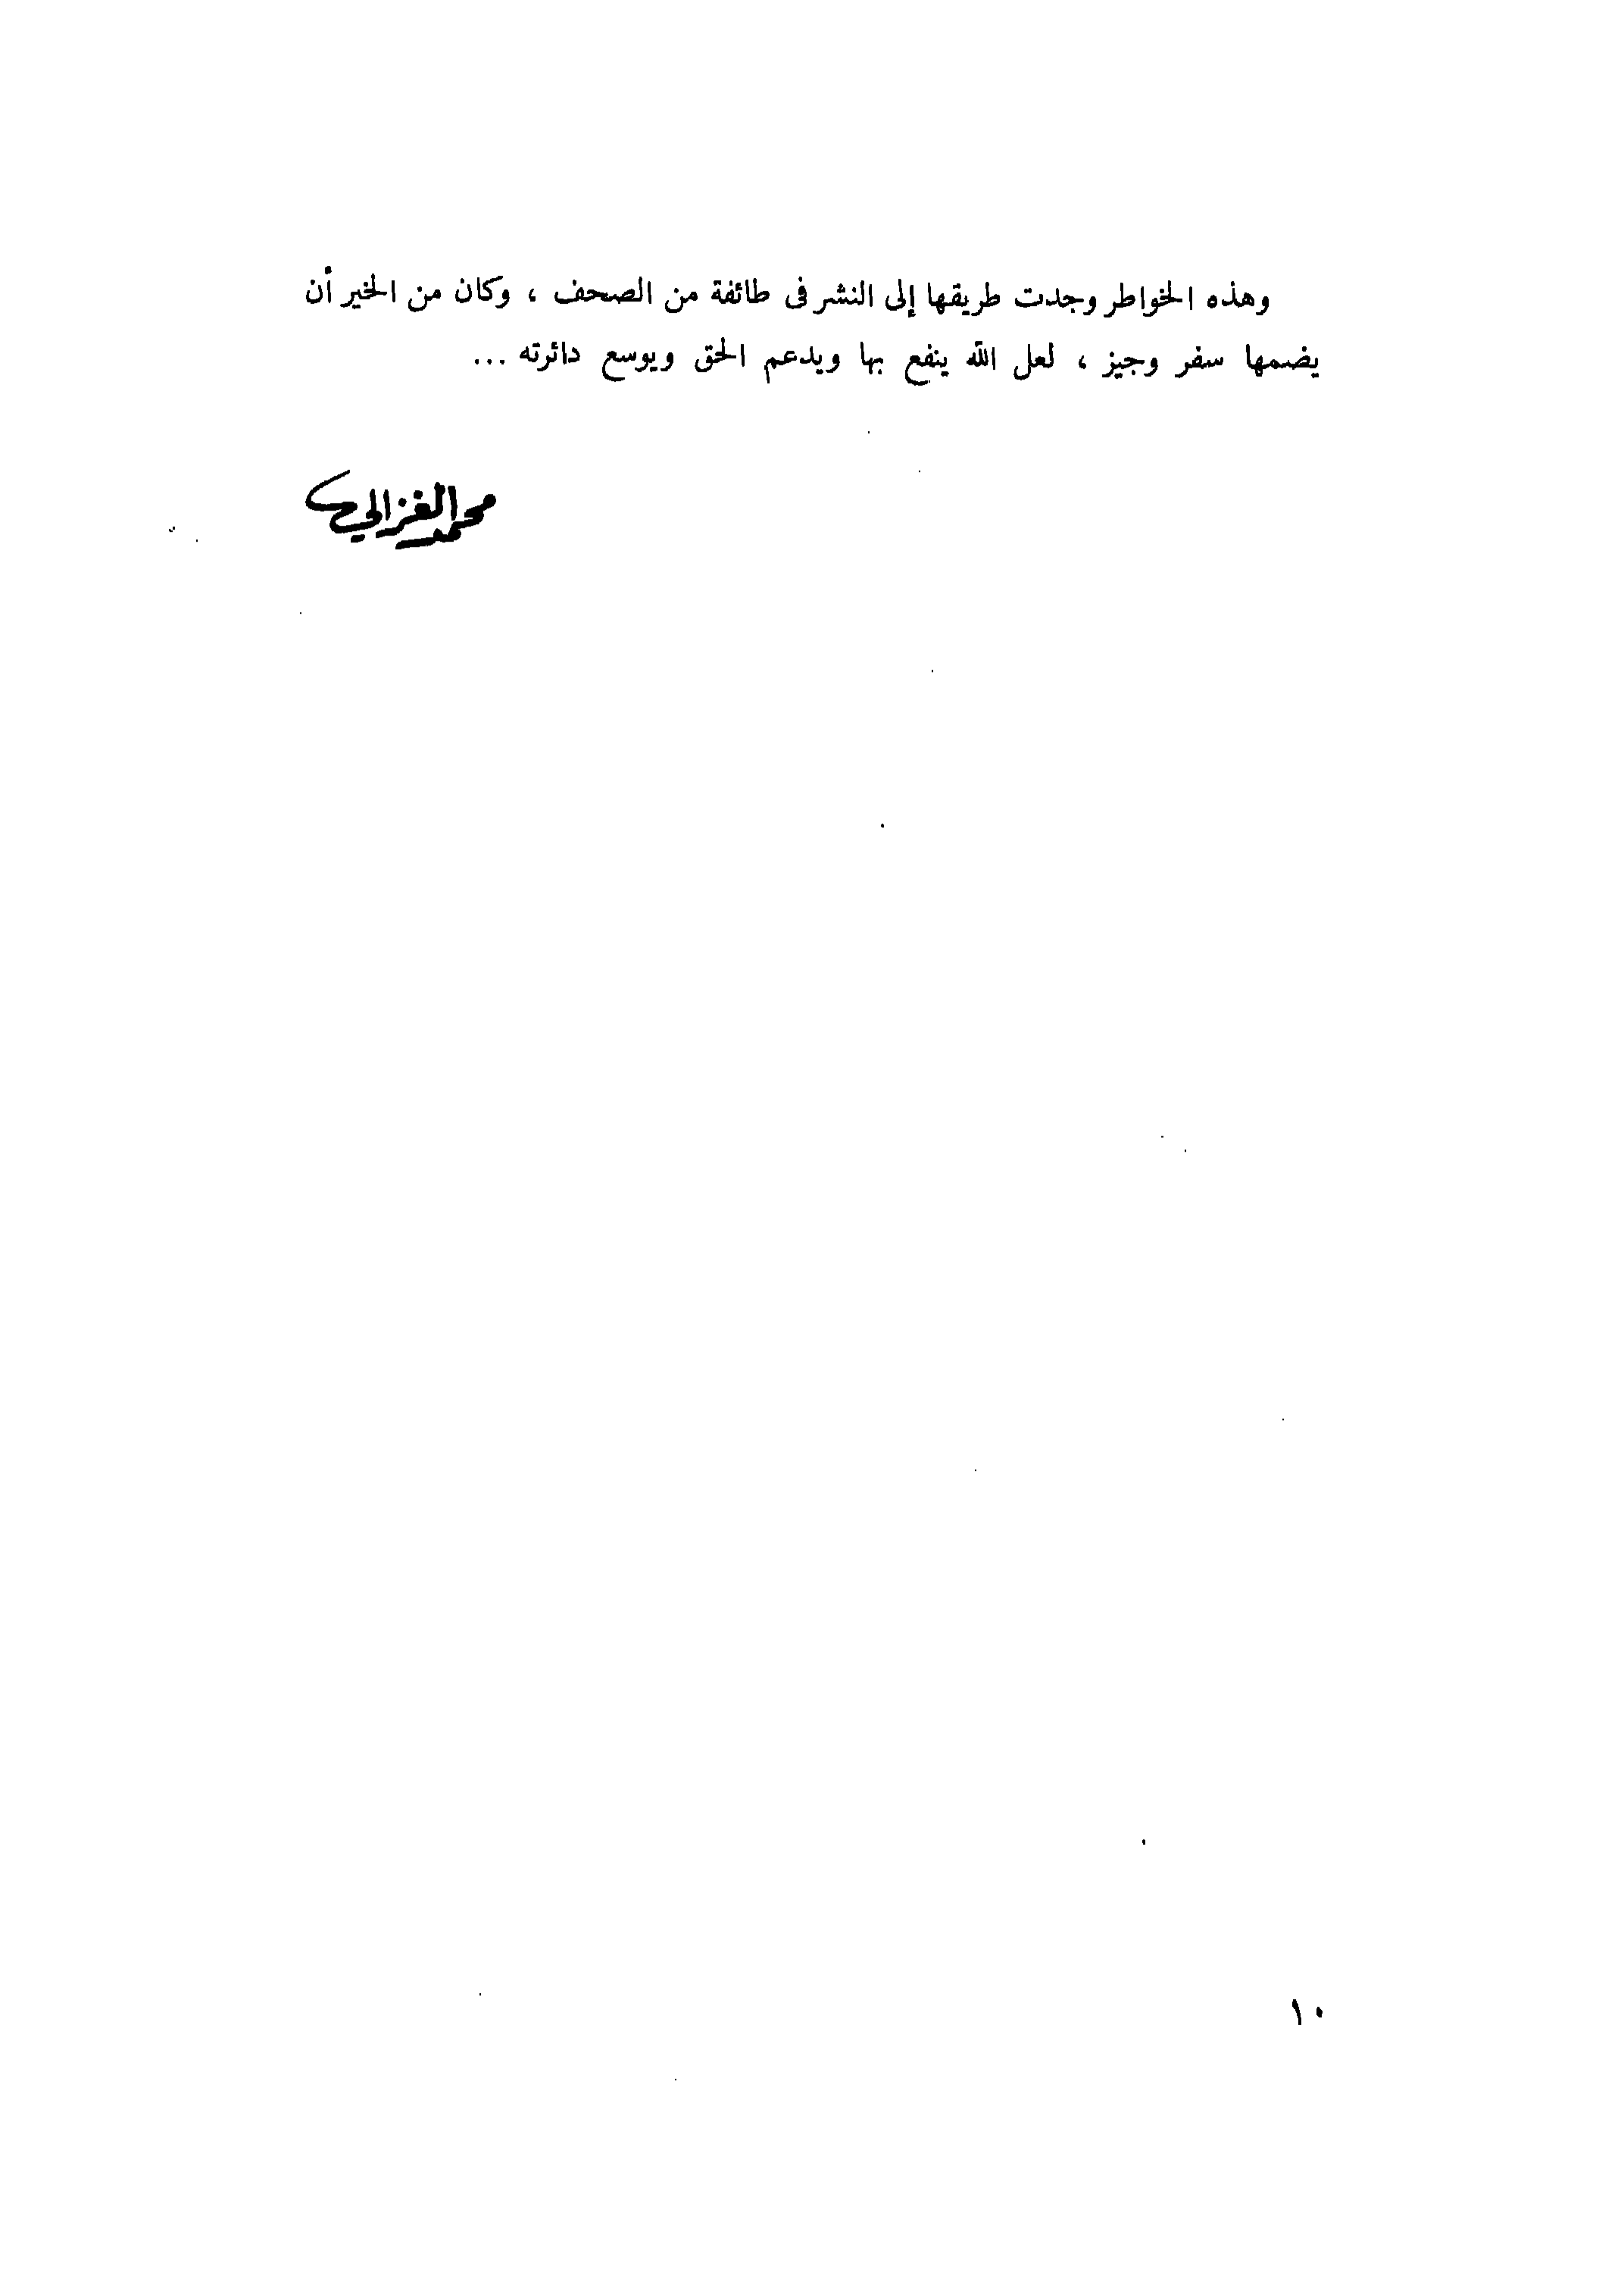 وهذه الخواطر وجدت طريقها إلى النشر فى طائفة من الصحف ، وكان من الخير أن
يضمها سفر وجيز ، لعل الله ينفع بها ويدعم الحق ويوسع دائرته ...
محمد الغزالي
١٠